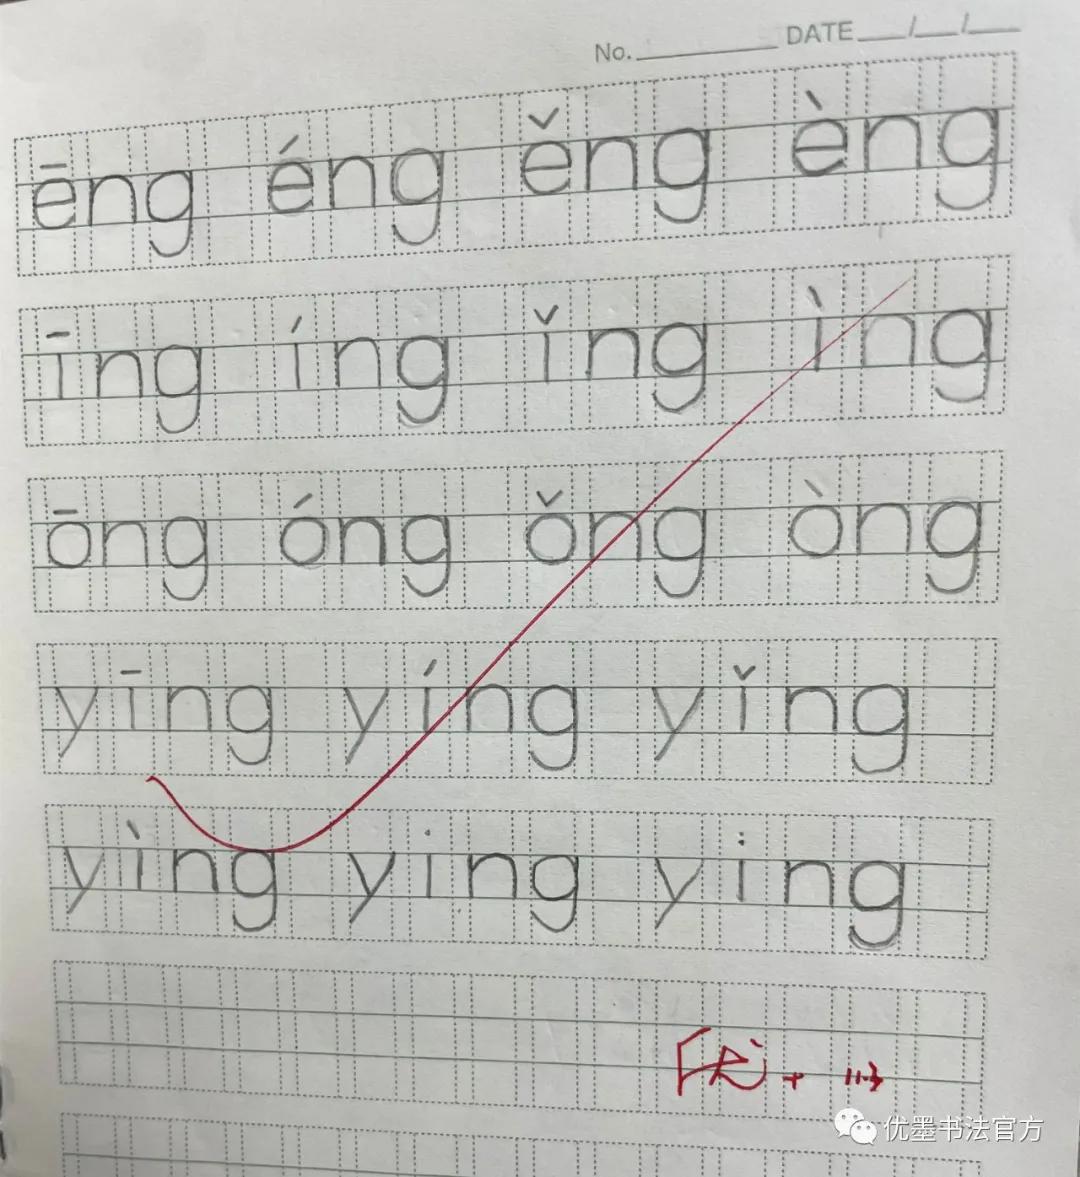 No. DATE / /
ēng éng ěng èng
īng íng ǐng ìng
ōng óng ǒng òng
yīng yíng yǐng
yìng ying ying
优墨书法官方